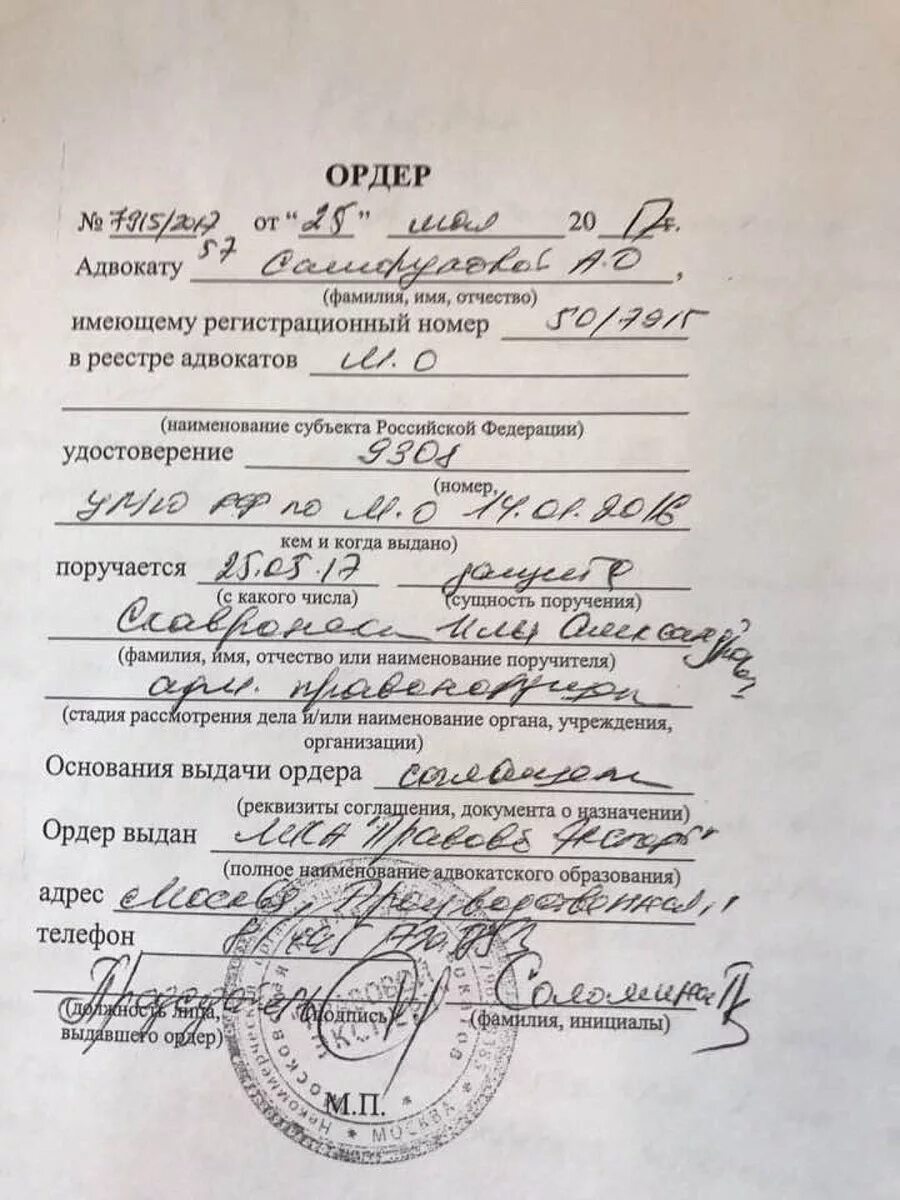 ОРДЕР
№ 7915/2017 от "25" мая 2017г.
57
Адвокату А.О,
(фамилия, имя, отчество)
имеющему регистрационный номер 50/7915
в реестре адвокатов М.О
(наименование субъекта Российской Федерации)
удостоверение 9308
(номер,
УМЮ РФ по М.О 14.01.2016
кем и когда выдано)
поручается 25.05.17 защита
(с какого числа) (сущность поручения)
Ильи Александровича
(фамилия, имя, отчество или наименование поручителя)
адм. правонарушен
(стадия рассмотрения дела и/или наименование органа, учреждения,
организации)
Основания выдачи ордера соглашен
(реквизиты соглашения, документа о назначении)
Ордер выдан МКА "Правовой Эксперт"
(полное наименование адвокатского образования)
адрес Москва, Производственная,
телефон
Председатель Соломина
(должность лица, (подпись) (фамилия, инициалы)
выдавшего ордер)
М.П.
МОСКВА